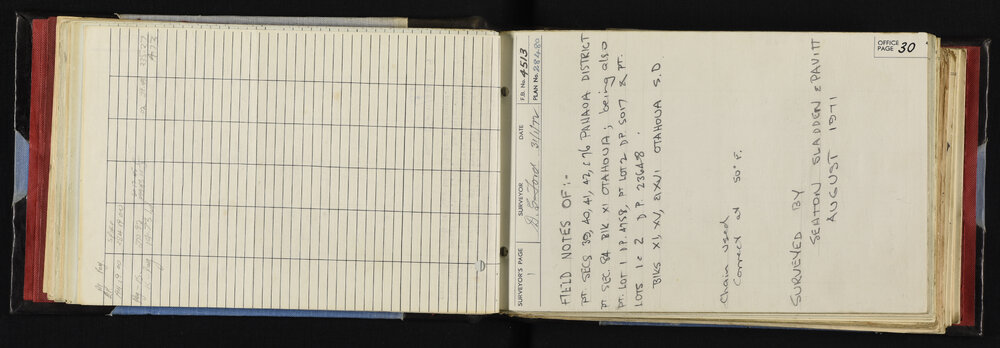 OFFICE PAGE 30
SURVEYOR'S PAGE 1
SURVEYOR
DATE 31/1/72
F.B. No. 4513
PLAN No. 28480
FIELD NOTES OF:-
PT. SECS 39, 40, 41, 42, & 76 PAHAOA DISTRICT
PT SEC. 84 BLK XI OTAHOUA; being also
PT. LOT 1 D.P. 4758, PT LOT 2 D.P. 5017 & PT.
LOTS 1 & 2 D.P. 23648.
BLKS XI, XV, & XVI OTAHOUA S.D.
Chain used
correct at 50° F.
SURVEYED BY
SEATON SLADDEN & PAVITT
AUGUST 1971